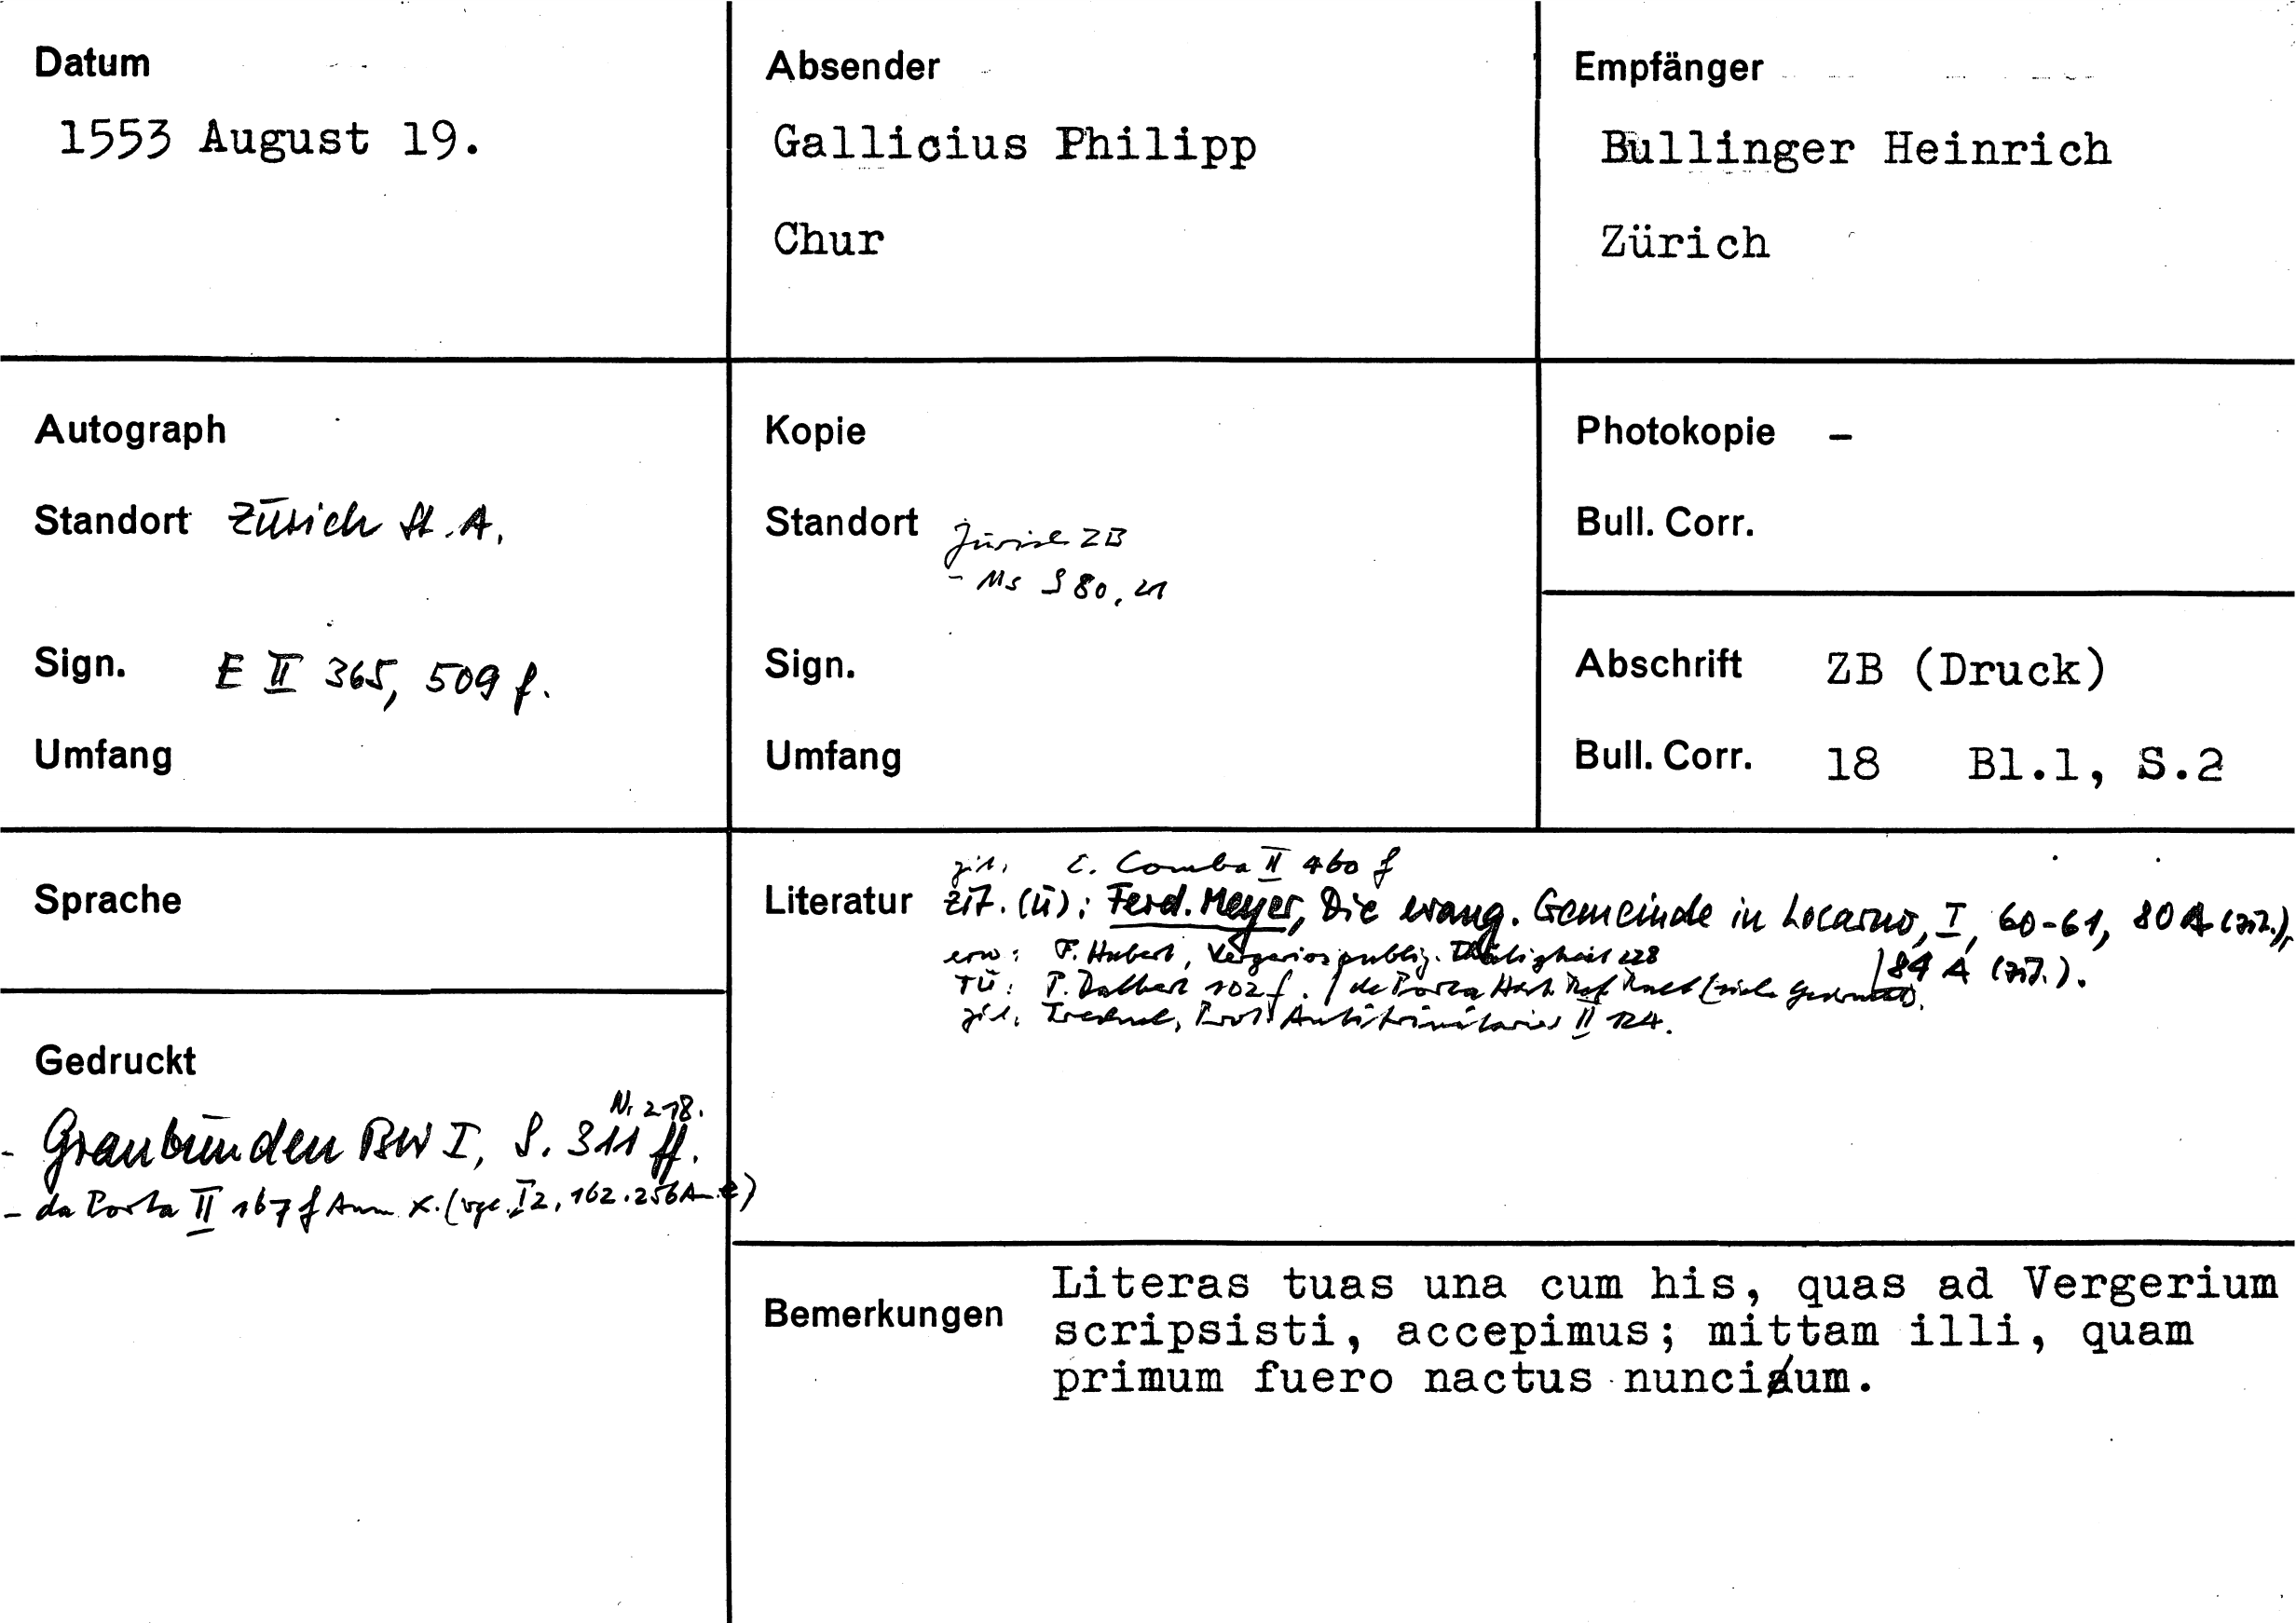 Datum
1553 August 19.
Absender
Gallicius Philipp
Chur
Empfänger
Bullinger Heinrich
Zürich
Autograph
Standort Zürich St.A.
Sign. E II 365, 509 f.
Umfang
Kopie
Standort Zürich ZB
- Ms S 80, 21
Sign.
Umfang
Photokopie –
Bull. Corr.
Abschrift ZB (Druck)
Bull. Corr. 18 Bl.1, S.2
Sprache
Gedruckt
Nr 218.
- Graubünden BW I, S. 311 ff.
- da Porta II 167 f Anm x. (vgl. I 2, 162. 256 A
zit. E. Comba II 460 f
Literatur zit. (ü): Ferd. Meyer, Die evang. Gemeinde in Locarno, I, 60-61, 80 A (zit.),
84 A (zit.).
erw: F. Hubert, Vergerios publiz. Thätigkeit 128
TÜ: P. Dalbert 102 f. / de Porta Hist. Ref. (siehe Gedruckt).
zit. Trechsel, Prot. Antitrinitarier II 124.
Bemerkungen
Literas tuas una cum his, quas ad Vergerium
scripsisti, accepimus; mittam illi, quam
primum fuero nactus nuncium.